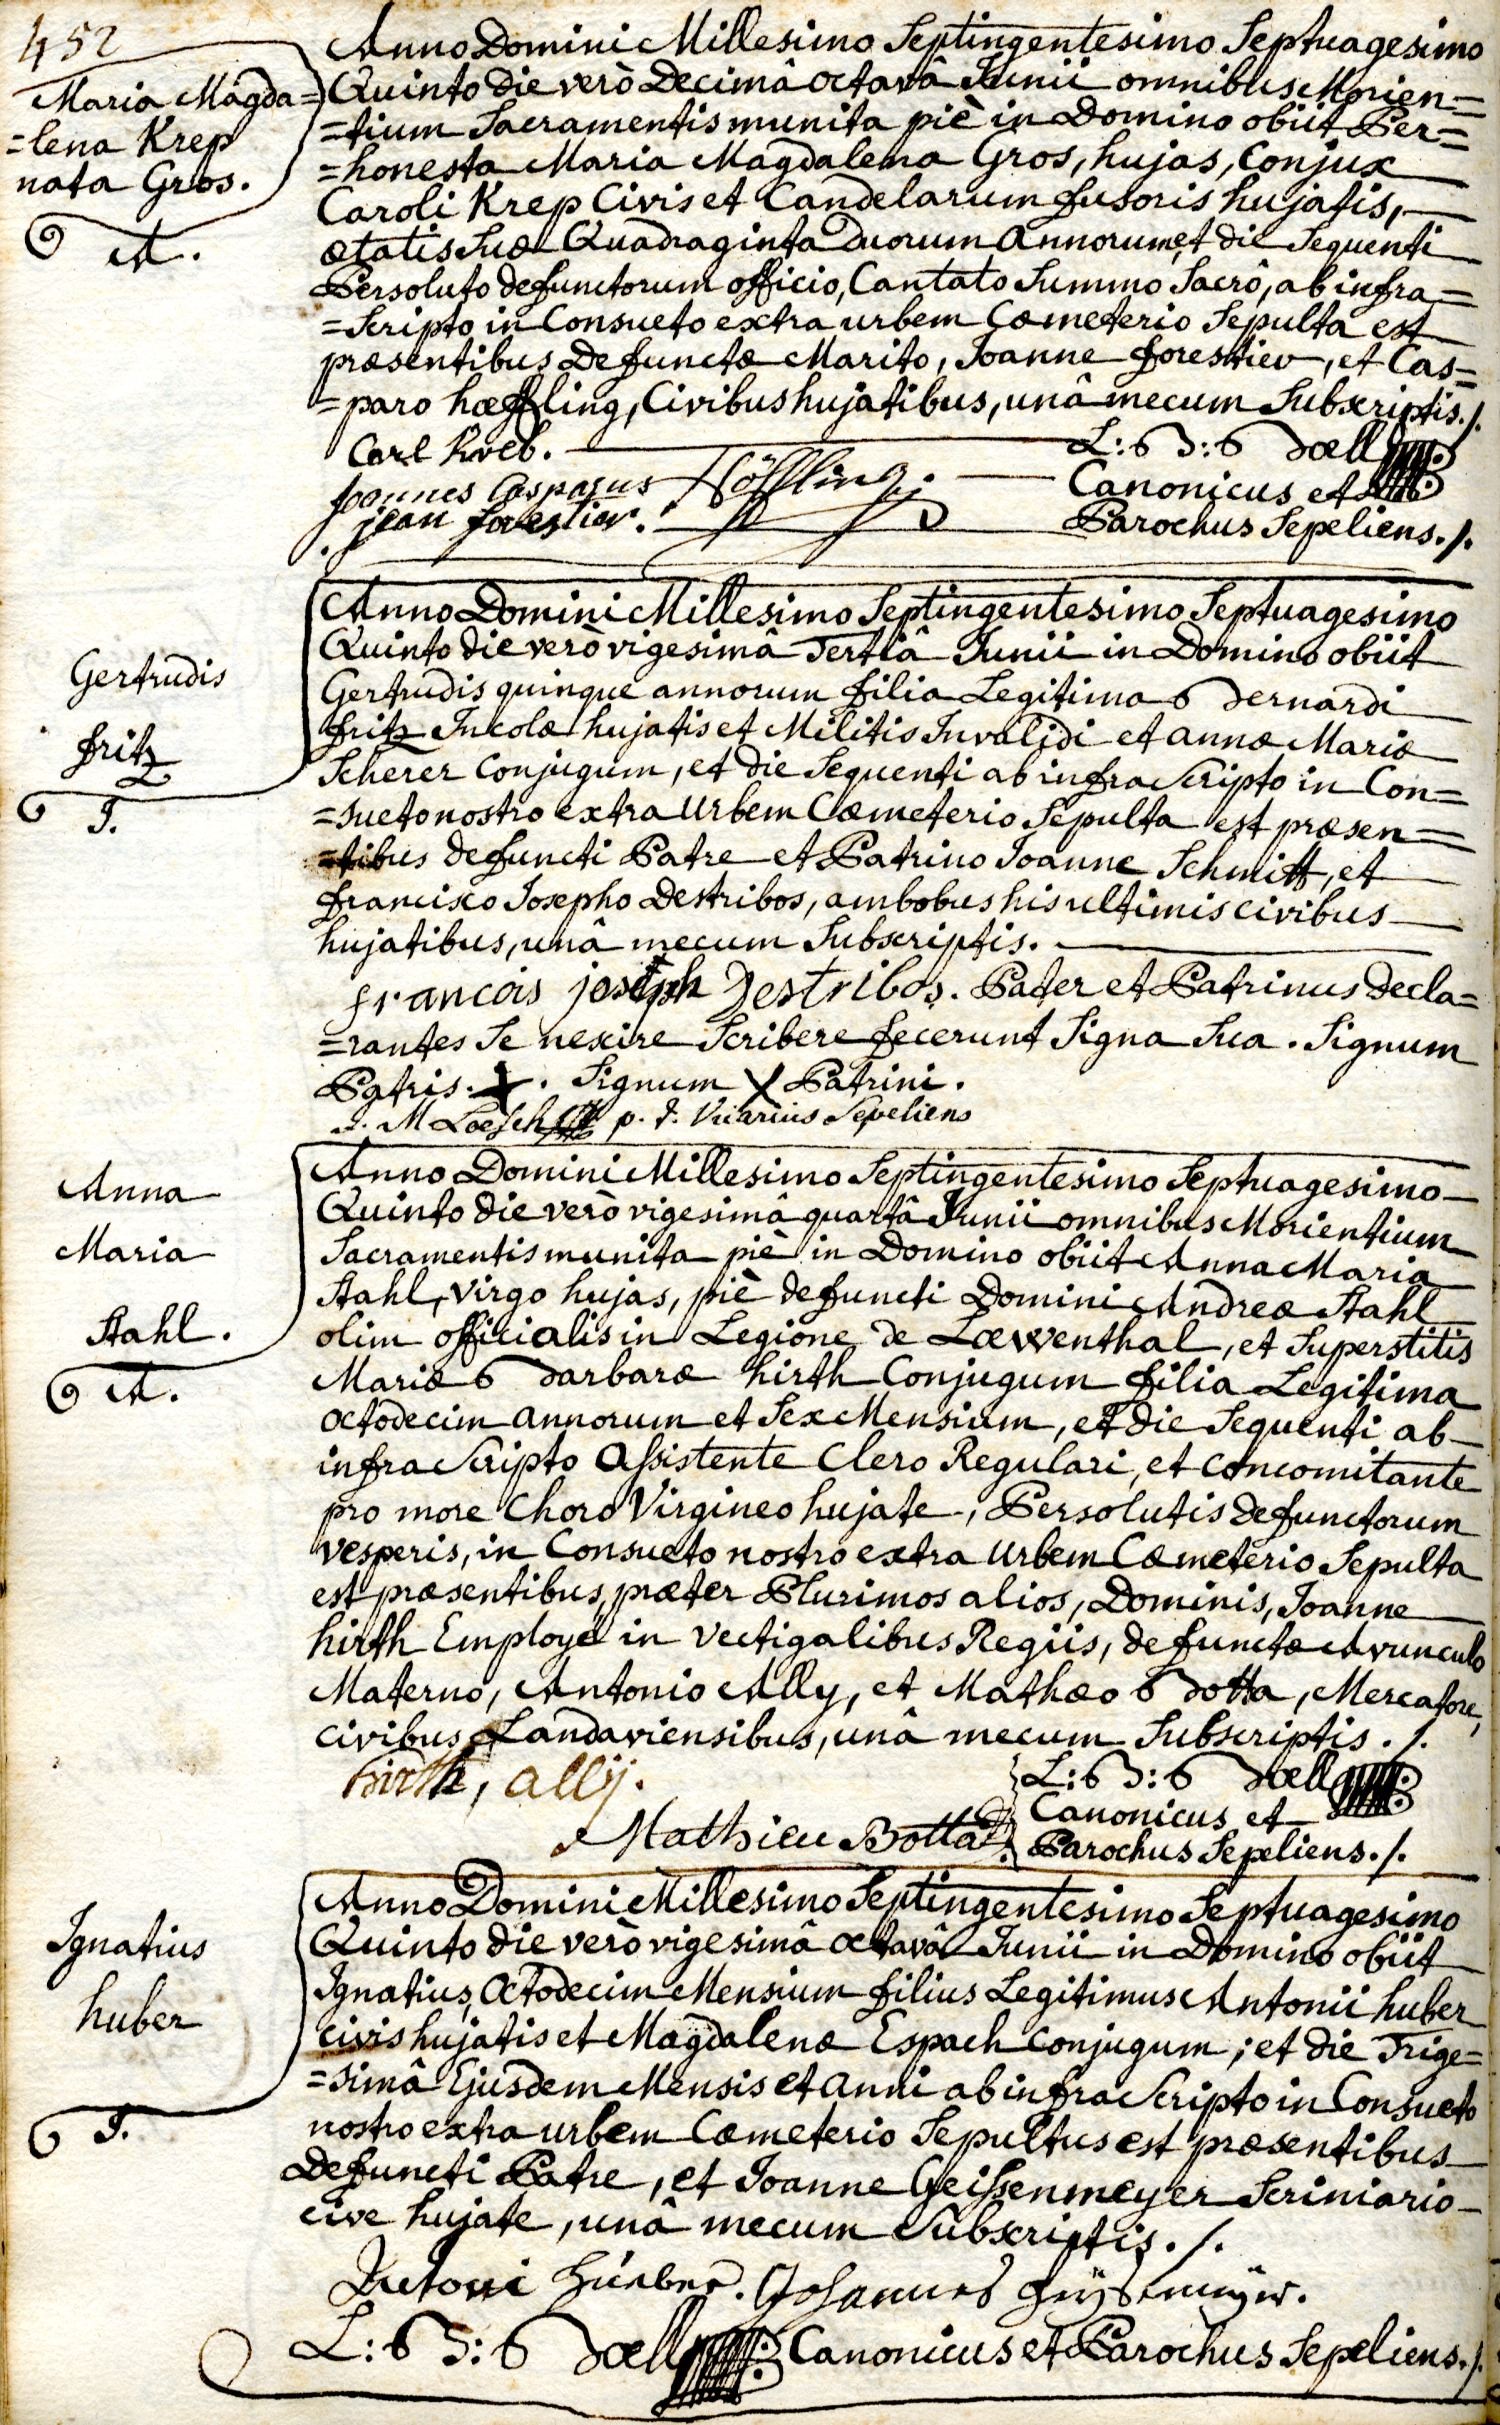 452
Maria Magda=
=lena Krep
nata Gros.
A.
Anno Domini Millesimo Septingentesimo Septuagesimo
Quinto die verò Decimâ octavâ Junii omnibus Morien=
=tium Sacramentis munita piè in Domino obiit Per=
=honesta Maria Magdalena Gros, hujas, Conjux
Caroli Krep Civis et Candelarum fusoris hujatis,
ætatis suæ Quadraginta Duorum annorum, et die Sequenti
Persoluto defunctorum officio, Cantato Summo Sacrô, ab infra=
=Scripto in Consueto extra urbem Cæmeterio Sepulta est
præsentibus Defunctæ Marito, Joanne forestier, et Cas=
=paro hœffling, Civibus hujatibus, unâ mecum Subscriptis./.
Carl Kreb.
Joannes Casparus Höffling.
jean forestier.
L: B: Bœll
Canonicus et
Parochus Sepeliens./.
Gertrudis
fritz
J.
Anno Domini Millesimo Septingentesimo Septuagesimo
Quinto die verò vigesimâ Tertiâ Junii in Domino obiit
Gertrudis quinque annorum filia Legitima Bernardi
fritz Incolæ hujatis et Militis Invalidi et annæ Mariæ
Scherer Conjugum, et die Sequenti ab infra Scripto in Con=
=sueto nostro extra Urbem Cæmeterio Sepulta est præsen=
=tibus defuncti Patre et Patrino Joanne Schmitt, et
francisco Josepho Destribos, ambobus his ultimis civibus
hujatibus, unâ mecum Subscriptis.
francois joseph Destribos. Pater et Patrinus decla=
=rantes Se nescire Scribere fecerunt Signa Sua. Signum
Patris. +. Signum X Patrini.
J. M Loesch p. t. Vicarius Sepeliens
Anna
Maria
Stahl.
A.
Anno Domini Millesimo Septingentesimo Septuagesimo
Quinto die verò vigesimâ quartâ Junii omnibus Morientium
Sacramentis munita piè in Domino obiit Anna Maria
Stahl, Virgo hujas, piè defuncti Domini Andreæ Stahl
olim officialis in Legione de Lœwenthal, et Superstitis
Mariæ Barbaræ hirth Conjugum filia Legitima
octodecim annorum et Sex Mensium, et die Sequenti ab
infra Scripto assistente Clero Regulari, et Concomitante
pro more Choro Virgineo hujate, Persolutis defunctorum
vesperis, in Consueto nostro extra Urbem Cæmeterio Sepulta
est præsentibus, præter Plurimos alios, Dominis, Joanne
hirth Employé in Vectigalibus Regiis, defunctæ Avunculo
Materno, Antonio Ally, et Mathæo Botta, Mercatore,
civibus Landaviensibus, unâ mecum Subscriptis./.
hirth, ally.
Mathieu Botta
L: B: Bœll
Canonicus et
Parochus Sepeliens./.
Ignatius
huber
J.
Anno Domini Millesimo Septingentesimo Septuagesimo
Quinto die verò vigesimâ octavâ Junii in Domino obiit
Ignatius, Octodecim Mensium filius Legitimus Antonii huber
civis hujatis et Magdalenæ Espach conjugum; et die Trige=
=simâ Ejusdem Mensis et anni ab infra Scripto in Consueto
nostro extra urbem Cæmeterio Sepultus est præsentibus
Defuncti Patre, et Joanne Geissenmeyer Scriniario
cive hujate, unâ mecum Subscriptis./.
Antoni Hueber. Johannes
L: B: Bœll Canonicus et Parochus Sepeliens./.